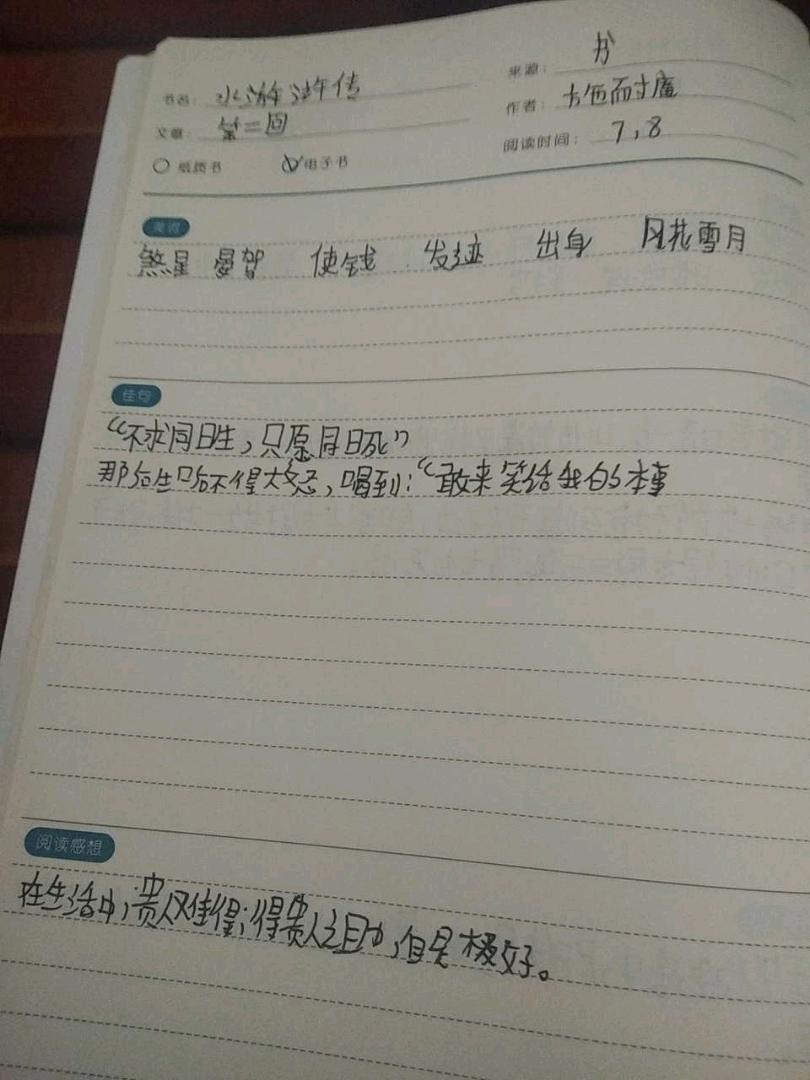 书名: 水浒传
来源: 书
作者:
文章: 第二回
阅读时间: 7,8
纸质书 电子书
美词
煞星 晏驾 使钱 发迹 出身 风花雪月
佳句
“不求同日生,只愿同日死”
那后生哈不得大怒,喝到:“敢来笑话我的本事
阅读感想
在生活中,贵人难得;得贵人之助,自是极好。